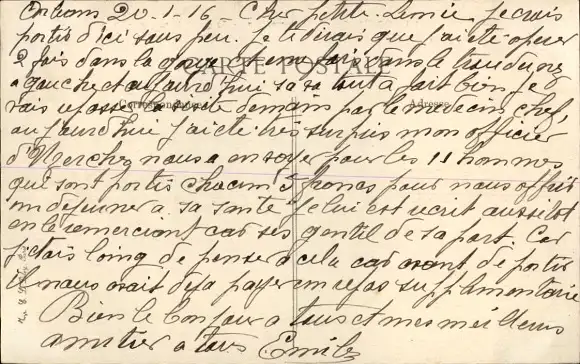 Orleans 20-1-16 - Cher petite Leonie je crois
partir d'ici sous peu. Je te dirais que j'ai ete operer
2 fois dans la gorge, 1 une fois dans le trou du nez
a gauche et aujourd'hui sa va tout a fait bien, je
vais repasser la visite demain par le medecin chef,
aujourd'hui j'ai ete tres surpris mon officier
nous a envoyer pour les 11 hommes
qui sont partis chacun 5 francs pour nous offrir
un dejeuner a sa santé je lui est ecrit aussitot
en le remerciant car ses gentil de sa part. Car
j'etais loing de penser a cela car avant de partir
il nous avait deja payer un repas supplementaire
Bien le bonjour a tous et mes meilleurs
amitier a tous Emile
CARTE POSTALE
Correspondance
Adresse